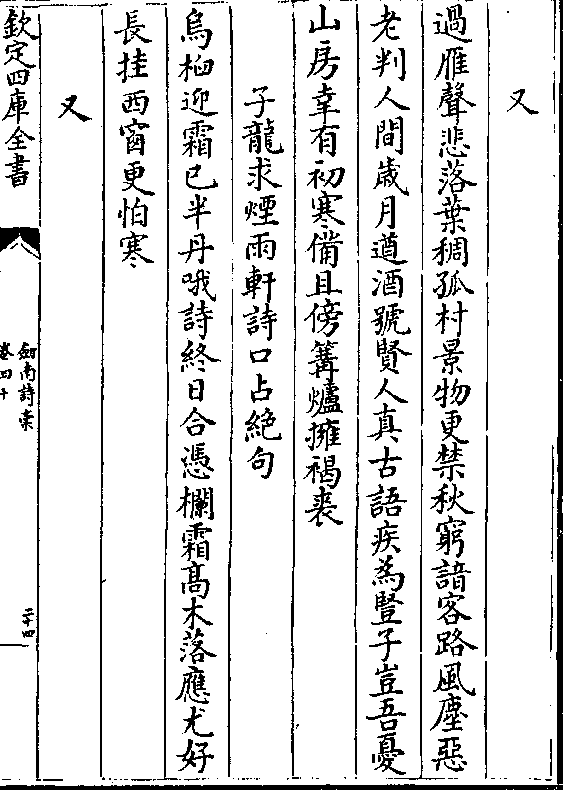 又
過雁聲悲落葉稠孤村景物更禁秋窮諳客路風塵惡
老判人間歲月遒酒號賢人真古語疾為豎子豈吾憂
山房幸有初寒備且傍篝爐擁褐裘
子龍求煙雨軒詩口占絶句
烏桕迎霜已半丹哦詩終日合憑欄霜髙木落應尤好
長挂西窗更怕寒
又
欽定四庫全書
劒南詩稾
卷四十
二十四